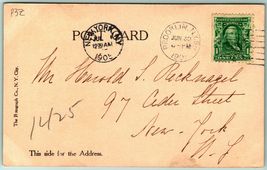 P32
POST CARD
NEW YORK, N.Y.
JUL
12 30 AM
1905
BROOKLYN, N.Y.
JUN 30
6 - PM
1905
Mr Harold S. Recknagel
97 Cedar Street
New-York
N.Y
1425
The Rotograph Co., N.Y. City.
This side for the Address.